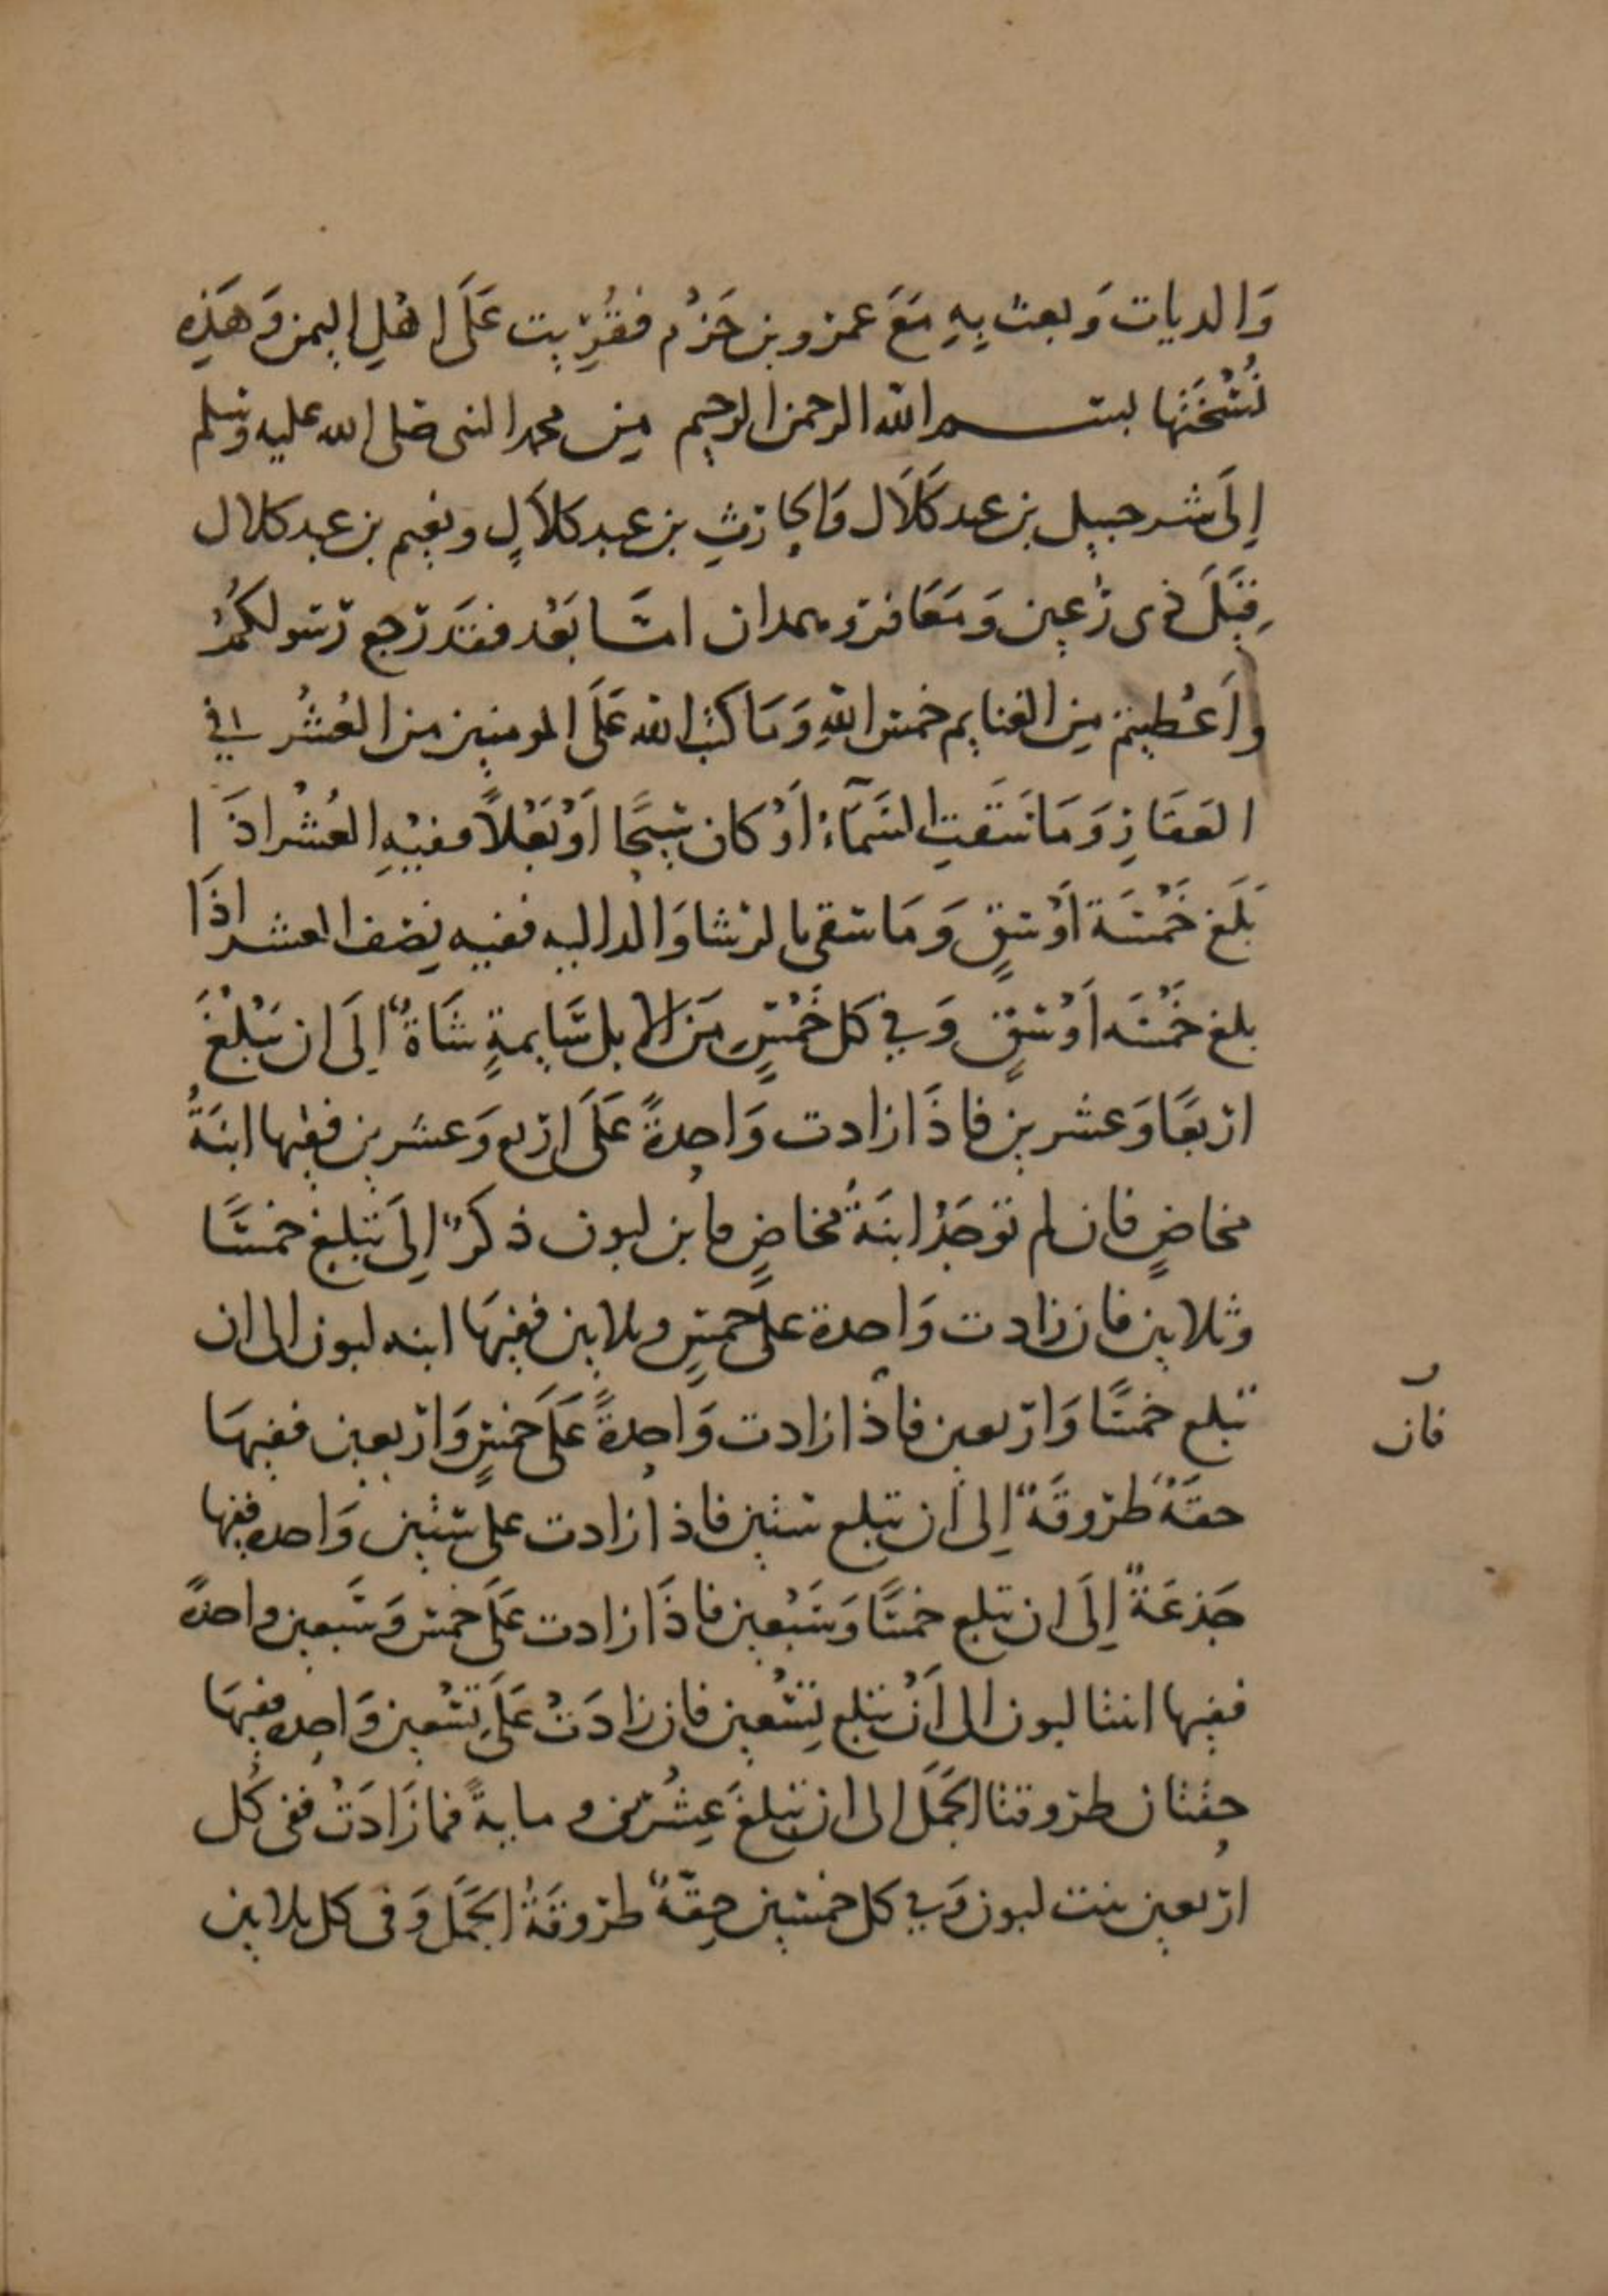 وَالديات وَبعث بِهِ مَعَ عمرو بن حَزْم فقُرِّيت عَلَى اهْلِ اليمن وَهَذِهِ
نُسْخَتُها بســم الله الرحمن الرحيم مِن محمد النبي صلى الله عليه وسلم
إِلَى شرحبيل بن عبد كَلَال وَالحارثِ بن عبد كلاَلٍ ونعيم بن عبد كلال
قِيَلَ ذى رُعين وَمَعَافر وهمدان امّا بَعْد فقَد رَجع رَسولكُمْ
واَعْطيتم مِن الغنايم خمس اللهِ وَمَا كتب الله عَلَى المومنين من العُشْر في
العَقَارِ وَمَا سَقَتِ السَمَآءُ اَوْ كان سَيْحًا اَوْ بَعْلاً ففيْهِ العُشْر اذَا
بَلَغ خَمْسَة اَوْسقٍ وَمَا سقى بالرشا وَالداليه ففيه نِصْف العشر اذَا
بلغ خَمْسَه اَوْسقٍ وَفي كل خَمْسٍ مَن الابل سَايمةٍ شَاةٌ إلَى ان تبْلُغَ
ارْبعًا وَعشرين فاذَا زادت وَاحدةً عَلَى ارْبع وَعشرين ففيها ابنَةُ
مخاضٍ فان لم توجَدْ ابنَةُ مخاضٍ فابن لبون ذكرٌ إلَى تبلغ خمسًا
وثلاثين فان زادت وَاحدة علَى خمسٍ وثلاثين ففيهَا ابنه لبون الى ان
تبلغ خمسًا وَارْبعين فاذا زادت وَاحدةً عَلَى خمسٍ وَارْبعين ففيهَا
حقةٌ طرُوقَةٌ إلى أن تبلغ ستين فاذا زادت على ستين وَاحده ففيها
جَذعَةٌ إلَى ان تبلغ خمسًا وَسَبْعين فاذَا زادت عَلَى خمس وَسَبعين واحدةً
ففيها ابنتا لبون الى أَنْ تبلغ تِسْعين فان زادَتْ عَلَى تِسْعين وَاحِده ففيهَا
حقتان طروقتا الجَمَل الى ان تبلغَ عِشْرين ومايةً فما زَادَتْ ففي كُل
ارْبعين بنت لبون وَفي كل خمسين حِقّةٌ طرُوقَةُ الجَمَل وَفى كل ثلاثين
فان